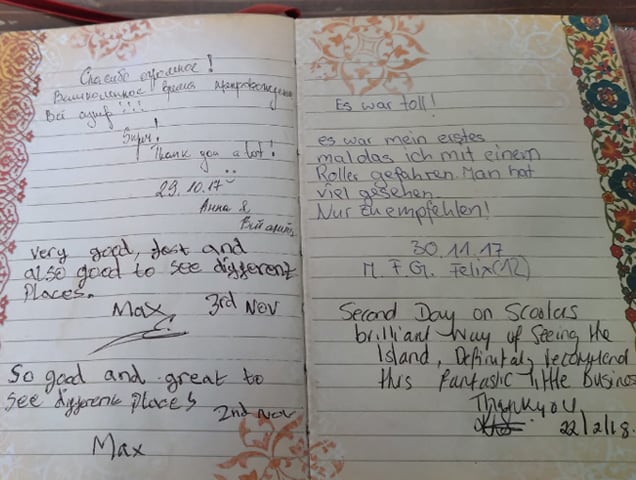 Спасибо огромное!
Великолепное время
Вай супер!!!
Super!
Thank you a lot!
29.10.17
Анна &
very good, fast and
also good to see different
Places.
Max 3rd Nov
So good and great to
see different Places
2nd Nov
Max
Es war toll!
es war mein erstes
mal das ich mit einem
Roller gefahren. Man hat
viel gesehen.
Nur zu empfehlen!
30.11.17
M.F.G. Felix (12)
Second Day on Scooters
brilliant way of Seeing the
Island, Definitely recommend
this fantastic little busines
Thankyou
22/2/18.